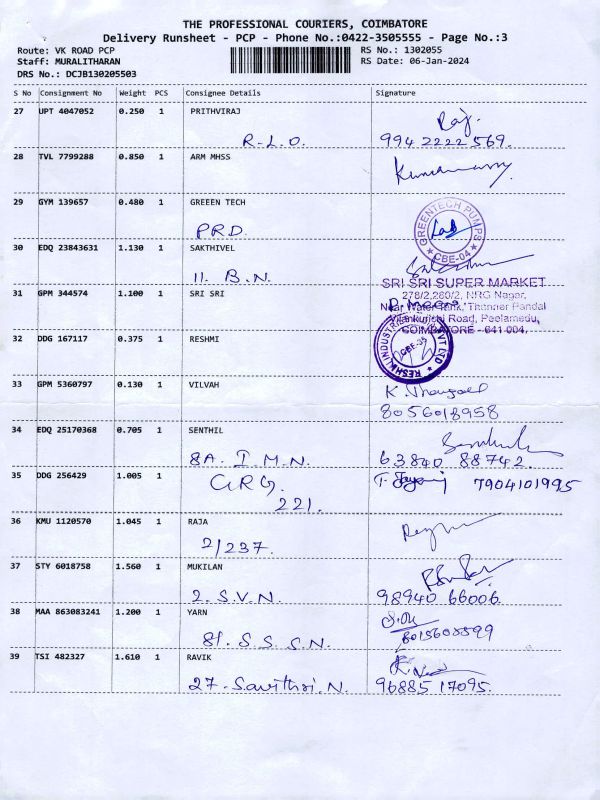 THE PROFESSIONAL COURIERS, COIMBATORE
Delivery Runsheet - PCP - Phone No.:0422-3505555 - Page No.:3
Route: VK ROAD PCP
Staff: MURALITHARAN
DRS No.: DCJB130205503
RS No.: 1302055
RS Date: 06-Jan-2024
S No Consignment No Weight PCS Consignee Details Signature
27 UPT 4047052 0.250 1 PRITHVIRAJ Raj.
R-L.O. 994 2222 569.
28 TVL 7799288 0.850 1 ARM MHSS
29 GYM 139657 0.480 1 GREEEN TECH
PRD.
GREENTECH PUMPS
CBE-04
30 EDQ 23843631 1.130 1 SAKTHIVEL
11. B.N.
31 GPM 344574 1.100 1 SRI SRI
SRI SRI SUPER MARKET
278/2,280/2, NRG Nagar,
Near Water Tank, Thanner Pandal
Vilankurichi Road, Peelamedu,
COIMBATORE - 641 004.
32 DDG 167117 0.375 1 RESHMI
CBE-35
33 GPM 5360797 0.130 1 VILVAH
8056018958
34 EDQ 25170368 0.705 1 SENTHIL
8A. I.M.N. 63840 88742.
35 DDG 256429 1.005 1 GRG. 7904101995
221.
36 KMU 1120570 1.045 1 RAJA
2/237.
37 STY 6018758 1.560 1 MUKILAN
2. S.V.N. 98940 66006
38 MAA 863083241 1.200 1 YARN
81. S.S.S.N.
39 TSI 482327 1.610 1 RAVIK
27. Savithri. N. 96885 17095.